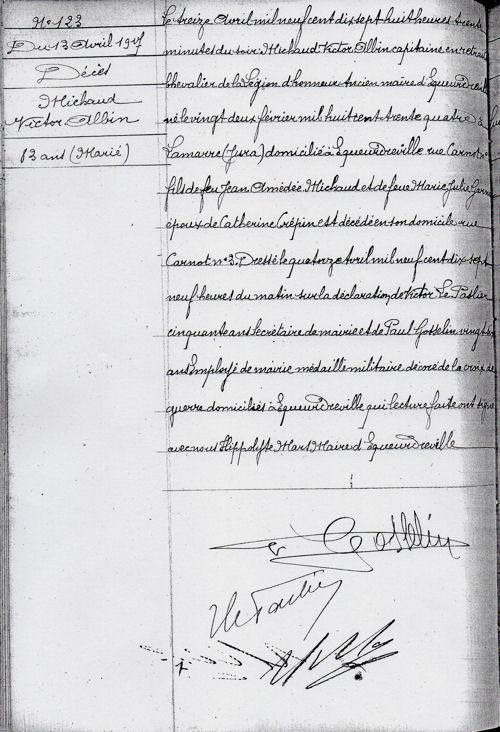 N° 123
Du 13 Avril 1917
Décès
Michaud
Victor Albin
83 ans (Marié)
Le treize Avril mil neuf cent dix sept huit heures trente
minutes du soir Michaud Victor Albin capitaine en retraite
chevalier de la Légion d'honneur Ancien maire d'Equeurdreville
né le vingt deux février mil huit cent trente quatre à
Lamarre (Jura) domicilié à Equeurdreville rue Carnot n°
fils de feu Jean Amédée Michaud et de feue Marie Julie
époux de Catherine Crépin est décédé en son domicile rue
Carnot n° 3. Dressé le quatorze Avril mil neuf cent dix sept
neuf heures du matin sur la déclaration de Victor Le Paslier
cinquante ans Secrétaire de mairie et de Paul Gosselin vingt
ans Employé de mairie médaillé militaire décoré de la croix de
guerre domiciliés à Equeurdreville qui lecture faite ont signé
avec nous Hippolyte Mars Maire d'Equeurdreville
Gosselin